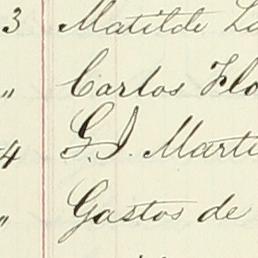 3 Matilde
" Carlos Flo
4 G. J. Marti
" Gastos de